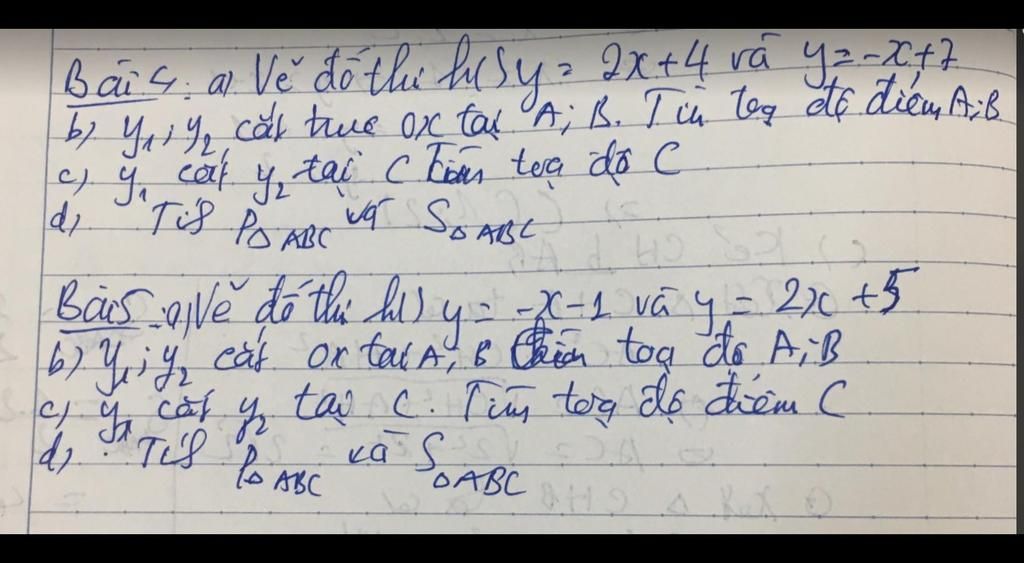 Bài 4: a) Vẽ đồ thị h/S y = 2x+4 và y = -x+7
b) y₁; y₂ cắt trục ox tại A; B. Tìm toạ độ điểm A; B
c) y₁ cắt y₂ tại C Tìm toạ độ C
d) Tis P△ABC và S△ABC
Bài 5: a) Vẽ đồ thị h/S y = -x-1 và y = 2x +5
b) y₁; y₂ cắt ox tại A; B toạ độ A; B
c) y₁ cắt y₂ tại C. Tìm toạ độ điểm C
d) Tis P△ABC và S△ABC